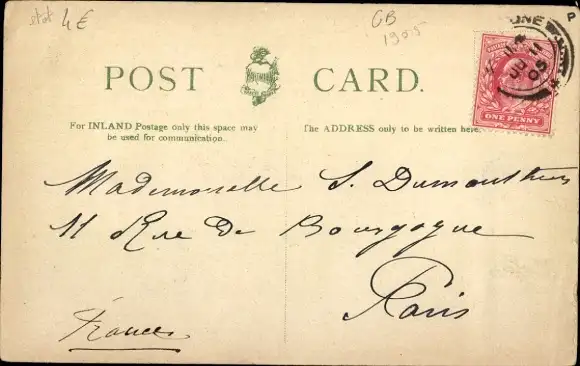 4£
GB
1905
POST CARD.
For INLAND Postage only this space may
be used for communication.
The ADDRESS only to be written here.
ONE PENNY
JU 11
05
Mademoiselle S.
11 Rue De Bourgogne
Paris
France